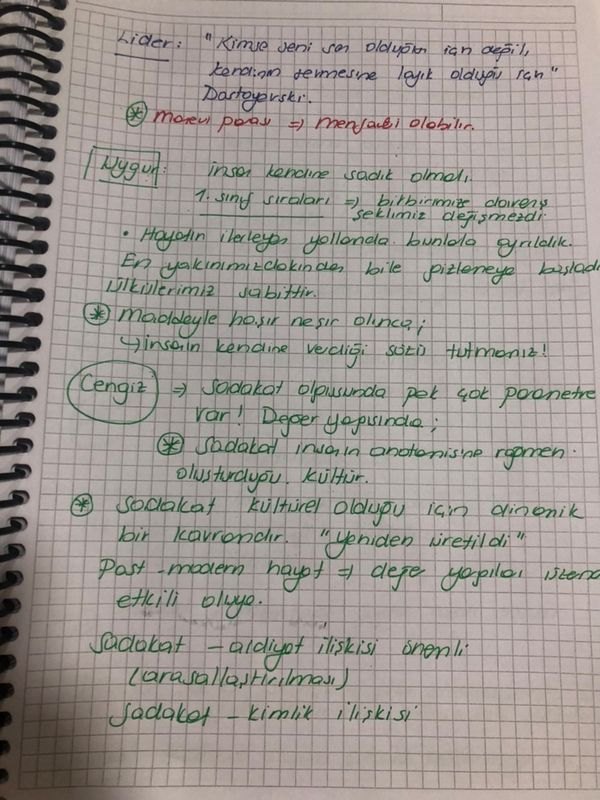 Lider: "Kimse seni sen olduğun için değil,
kendinin sevmesine layık olduğu için"
Dostoyevski.
* manevi parası => menfaati olabilir.
Uygur: insan kendine sadık olmalı.
1. sınıf sıraları => birbirimize davranış
şeklimiz değişmezdi
• Hayatın ilerleyen yollarında bunlarla ayrıldık.
En yakınımızdakinden bile gizlemeye başladı
ülkülerimiz sabittir.
* maddeyle haşır neşir olunca;
↳ insanın kendine verdiği sözü tutmanız!
Cengiz => sadakat olgusunda pek çok parametre
var! Değer yapısında;
* sadakat insanın anatomisine rağmen
oluşturduğu kültür.
* sadakat kültürel olduğu için dinamik
bir kavramdır. "yeniden üretildi"
Post-modern hayat => değer yapıları üzerine
etkili oluyo.
sadakat - aidiyat ilişkisi önemli
(arasallaştırılması)
sadakat - kimlik ilişkisi